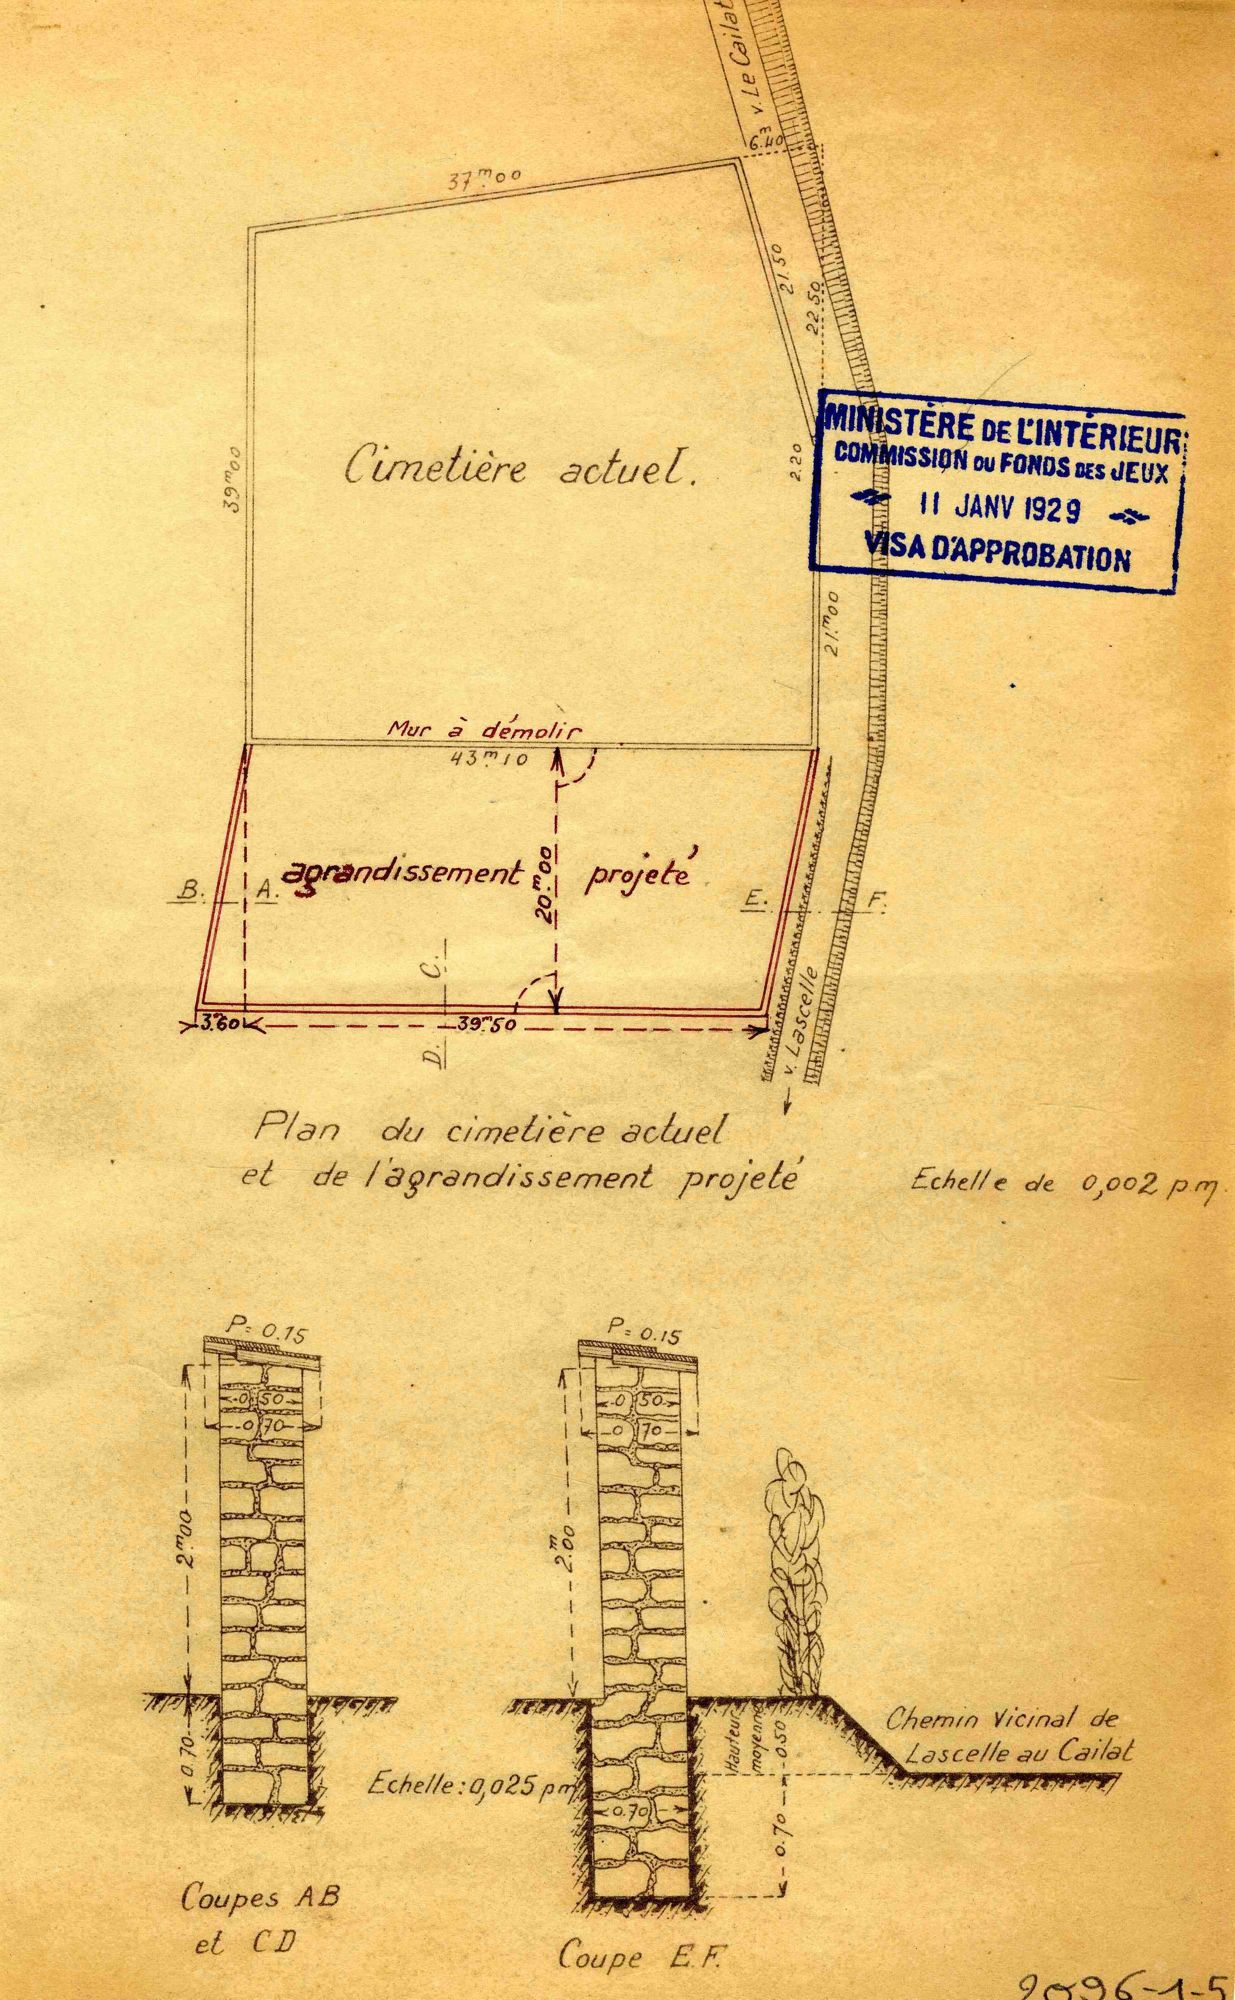 v. Le Cailat
6.ᵐ40
37ᵐ00
21.50
22.50
39ᵐ00
Cimetière actuel.
2.20
MINISTÈRE DE L'INTÉRIEUR
COMMISSION DU FONDS DES JEUX
11 JANV 1929
VISA D'APPROBATION
21ᵐ00
Mur à démolir
43ᵐ10
agrandissement projeté
20ᵐ00
B. A. E. F.
C.
D.
v. Lascelle
3ᵐ60 39ᵐ50
Plan du cimetière actuel
et de l'agrandissement projeté
Echelle de 0,002 p.m.
P = 0.15
0,50
0,70
2ᵐ00
0.70
P = 0.15
0,50
0,70
2ᵐ.00
Hauteur
moyenne
0.50
0.70
0.70
Chemin Vicinal de
Lascelle au Cailat
Echelle: 0,025 pm
Coupes AB
et CD
Coupe E.F.
2096-1-5